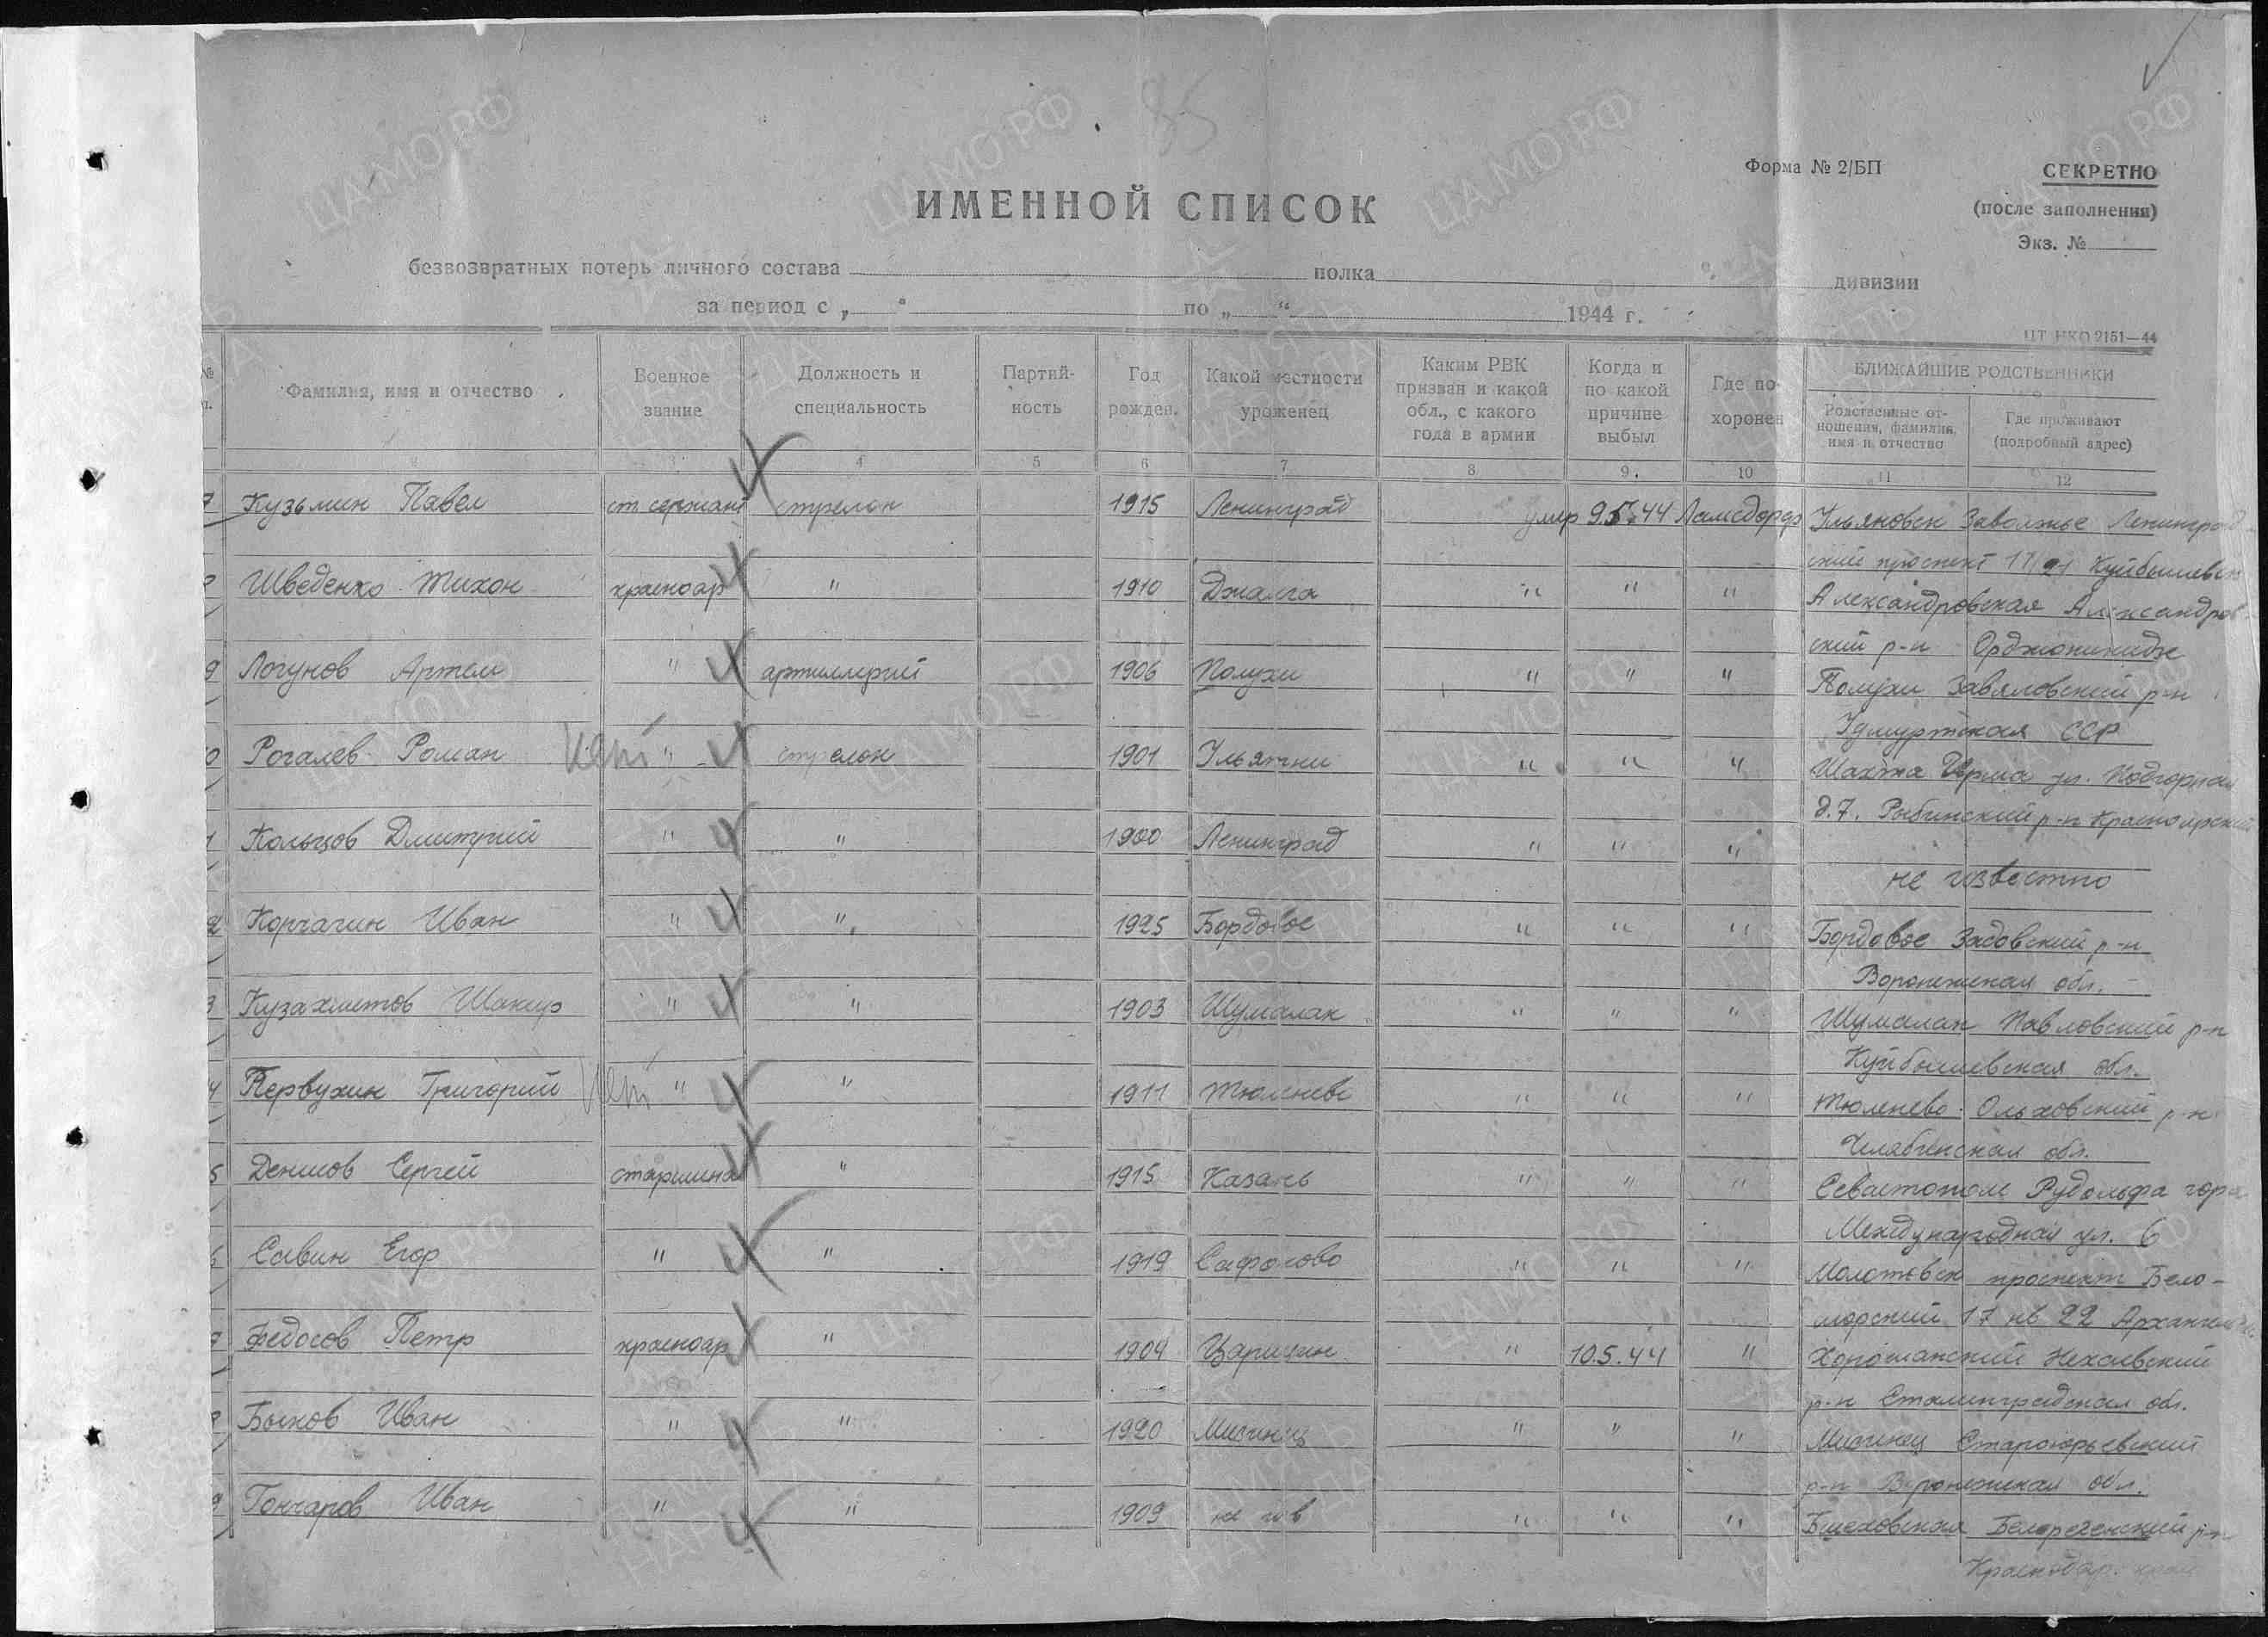 85
Форма № 2/БП
СЕКРЕТНО
(после заполнения)
Экз. №
ИМЕННОЙ СПИСОК
безвозвратных потерь личного состава полка дивизии
за период с „ “ по „ “ 1944 г.
ЦТ НКО 2151—44
№ п. Фамилия, имя и отчество Военное звание Должность и специальность Партийность Год рожден. Какой местности уроженец Каким РВК призван и какой обл., с какого года в армии Когда и по какой причине выбыл Где похоронен БЛИЖАЙШИЕ РОДСТВЕННИКИ
Родственные отношения, фамилия, имя и отчество Где проживают (подробный адрес)
3 4 5 6 7 8 9 10 11 12
7 Кузьмин Павел ст сержант стрелок 1915 Ленинград умер 9.5.44 Ламсдорф Ульяновск Заволжье Ленинград
ский проспект 17/21 Куйбышевск
8 Шведенко Тихон красноар " 1910 Джалга " " " Александровская Александров
ский р-н Орджоникидзе
9 Логунов Артем " артиллерий 1906 Полухи " " " Полухи Завяловский р-н
Удмуртская ССР
0 Рогалев Роман " стрелок 1901 Ильятни " " " Шахта Ирша ул. Подгорная
д.7. Рыбинский р-н Красноярский
1 Кольцов Дмитрий " " 1900 Ленинград " " "
не известно
2 Корчагин Иван " " 1925 Бордовое " " " Бордовое Задовский р-н
Воронежская обл.
3 Кузахметов Шакир " " 1903 Шумалак " " " Шумалак Павловский р-н
Куйбышевская обл.
4 Первухин Григорий " " 1911 Тюленево " " " Тюленево Ольховский р-н
Челябинская обл.
5 Денисов Сергей старшина " 1915 Казань " " " Севастополь Рудольфа гора
Международная ул. 6
6 Савин Егор " " 1919 Сафоново " " " Молотовск проспект Бело-
морский 17 кв 22 Архангельск
7 Федосов Петр красноар " 1904 Царицин " 10.5.44 " Хорошанский Нехаевский
р-н Сталинградская обл.
8 Быков Иван " " 1920 Мисинец " " " Мисинец Староюрьевский
р-н Воронежская обл.
9 Гончаров Иван " " 1909 " " " Бжеховская Белореченский р-н
Краснодар. край